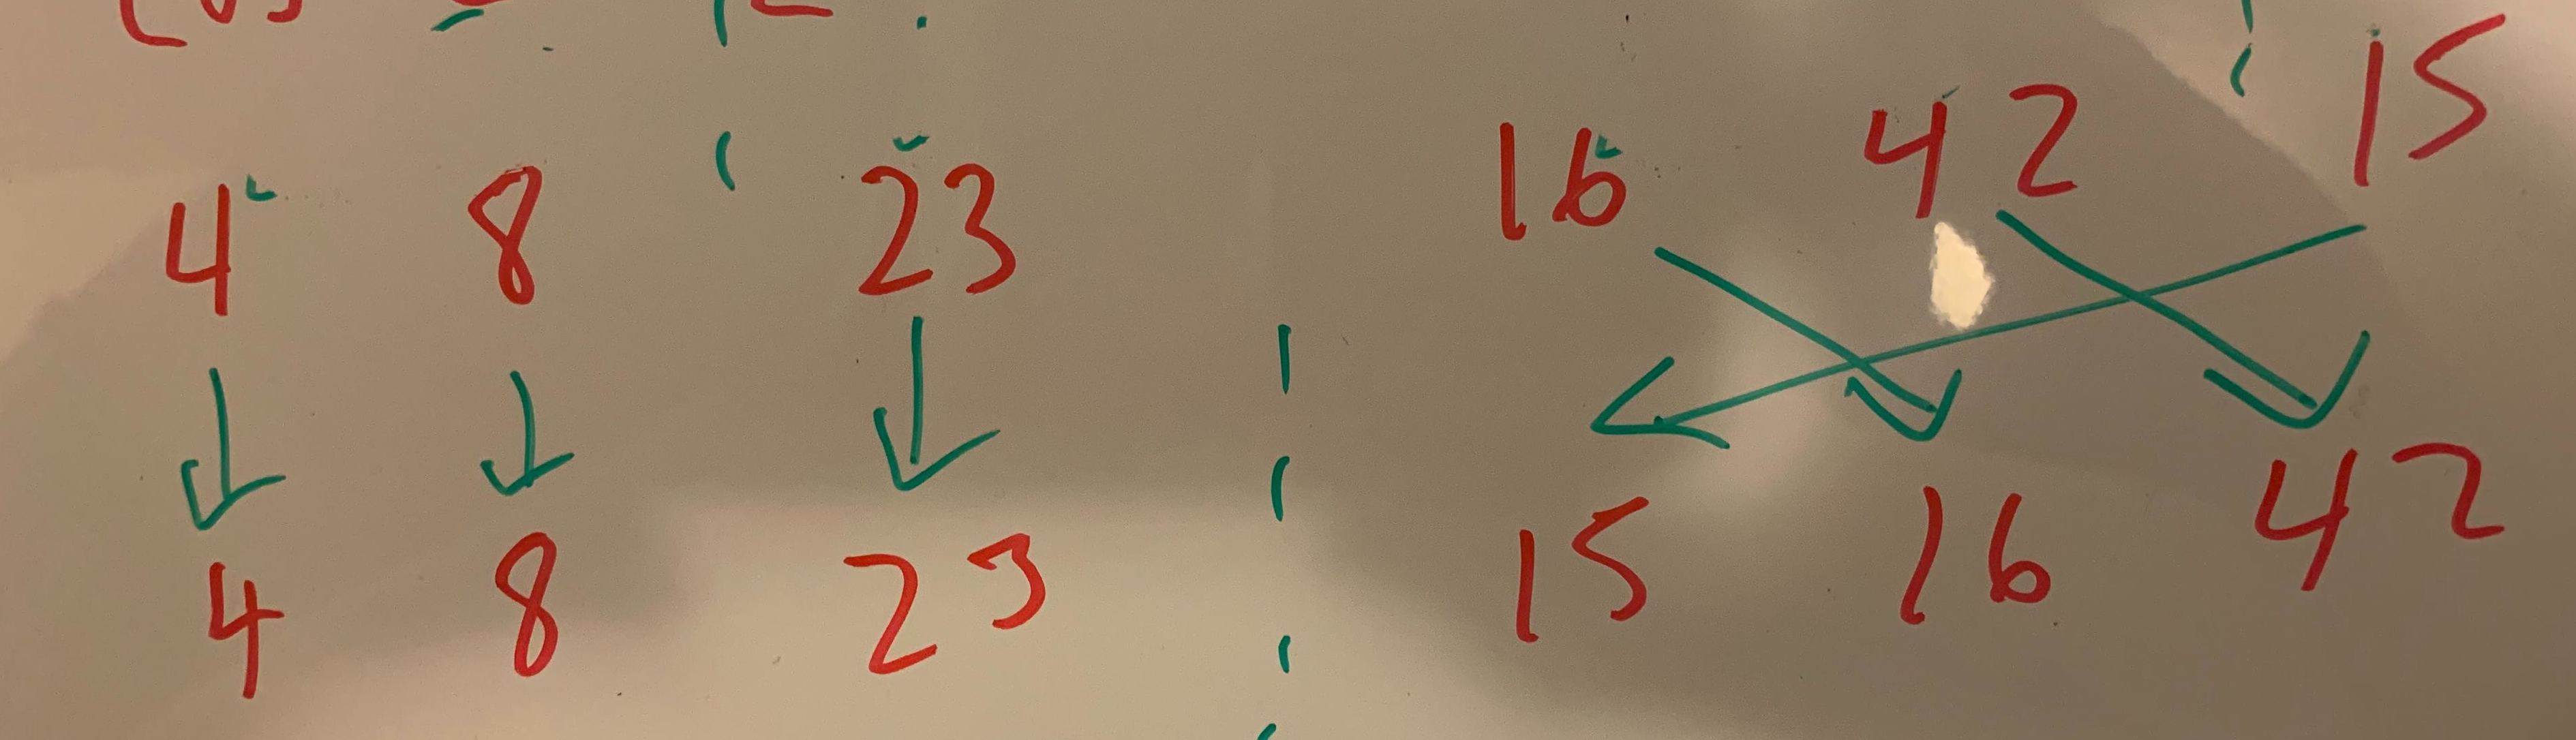 4 8 23 16 42 15
4 8 23 15 16 42